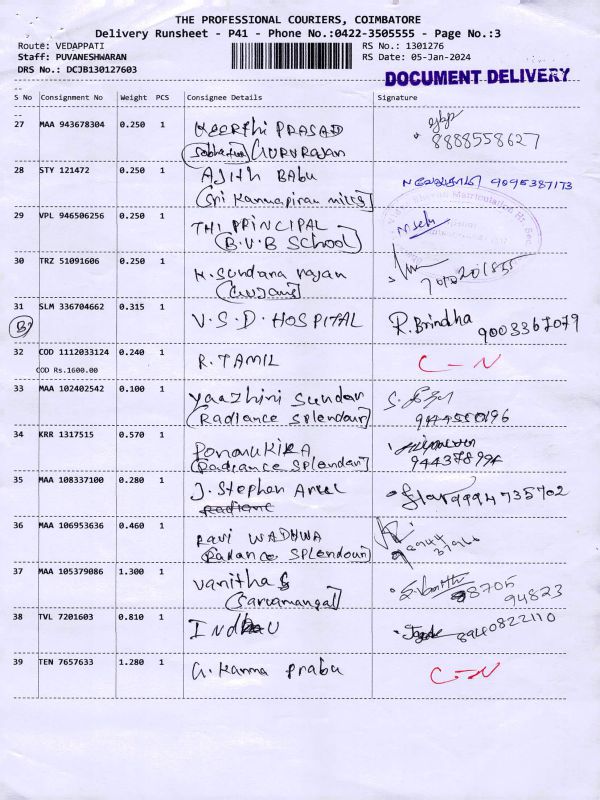 THE PROFESSIONAL COURIERS, COIMBATORE
Delivery Runsheet - P41 - Phone No.:0422-3505555 - Page No.:3
Route: VEDAPPATI
RS No.: 1301276
Staff: PUVANESHWARAN
RS Date: 05-Jan-2024
DRS No.: DCJB130127603
DOCUMENT DELIVERY
S No Consignment No Weight PCS Consignee Details Signature
27 MAA 943678304 0.250 1 KEERTHI PRASAD
GURURAJAN
8888558627
28 STY 121472 0.250 1 AJITH BABU
(Sri Kannapiran mills) 9095387173
29 VPL 946506256 0.250 1 THI PRINCIPAL
(B.V.B School)
30 TRZ 51091606 0.250 1 N. Sundara rajan
31 SLM 336704662 0.315 1 V.S.D. HOSPITAL R. Brindha 9003367079
32 COD 1112033124 0.240 1 R. TAMIL C-N
COD Rs.1600.00
33 MAA 102402542 0.100 1 Yaazhini Sundar
(Radiance Splendour)
34 KRR 1317515 0.570 1
(Radiance Splendour)
35 MAA 108337100 0.280 1 J. Stephen 9994735702
36 MAA 106953636 0.460 1 Ravi WADHWA
(Radiance Splendour)
37 MAA 105379086 1.300 1 Vanitha S
(Sarvamangal) 98705
94823
38 TVL 7201603 0.810 1 8940822110
39 TEN 7657633 1.280 1 G. Kanna Prabu C-N